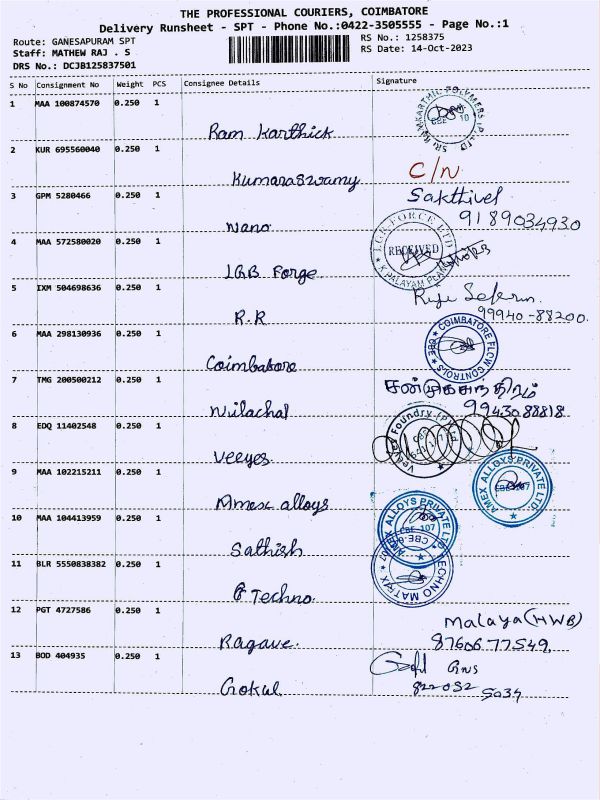 THE PROFESSIONAL COURIERS, COIMBATORE
Delivery Runsheet - SPT - Phone No.:0422-3505555 - Page No.:1
Route: GANESAPURAM SPT
RS No.: 1258375
Staff: MATHEW RAJ . S
RS Date: 14-Oct-2023
DRS No.: DCJB125837501
S No Consignment No Weight PCS Consignee Details Signature
1 MAA 100874570 0.250 1
Ram Karthick
2 KUR 695560040 0.250 1
Kumaraswamy C/N
3 GPM 5280466 0.250 1 Sakthivel
Nano 9189034930
4 MAA 572580020 0.250 1 RECEIVED
LGB Forge
5 IXM 504698636 0.250 1
R.R 99940-88200
6 MAA 298130936 0.250 1 COIMBATORE FLOW CONTROLS CBE
Coimbatore
7 TMG 200500212 0.250 1 சண்முகசுந்திரம்
Nilachal 9943088818
8 EDQ 11402548 0.250 1
Veeyes
9 MAA 102215211 0.250 1 AMEX ALLOYS PRIVATE LTD.
Amex alloys
10 MAA 104413959 0.250 1 AMEX ALLOYS PRIVATE LTD. CBE 107
Sathish
11 BLR 5550838382 0.250 1 TECHNO MATRIX
Techno
12 PGT 4727586 0.250 1 Malaya (HWB)
Ragave. 8760677549
13 BOD 404935 0.250 1
Gokul 822052 5034